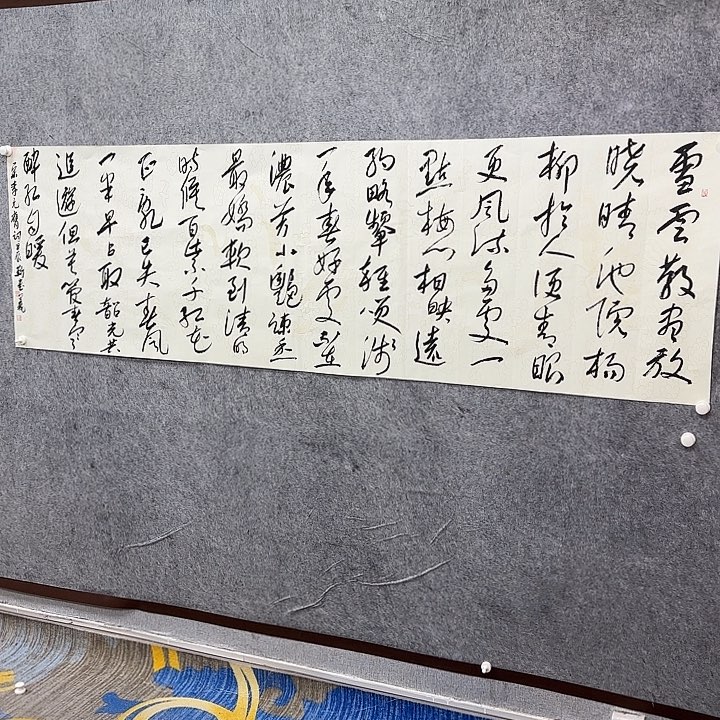 雪雲散尽放
曉晴池院楊
柳於人便青眼
更風流多處一
點梅心相映遠
約略顰輕笑淺
一年春好處不在
濃芳小艷疎香
最嬌軟到清明
時候百紫千紅花
正亂已失春風
一半早占取韶光共
追遊但莫管春寒
醉紅自暖
李元膺詞甲辰